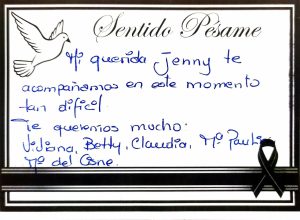 Sentido Pésame
Mi querida Jenny te
acompañamos en este momento
tan dificil
Te queremos mucho.
Viviana, Betty, Claudia, Mª Paulin
Mª del Cisne.